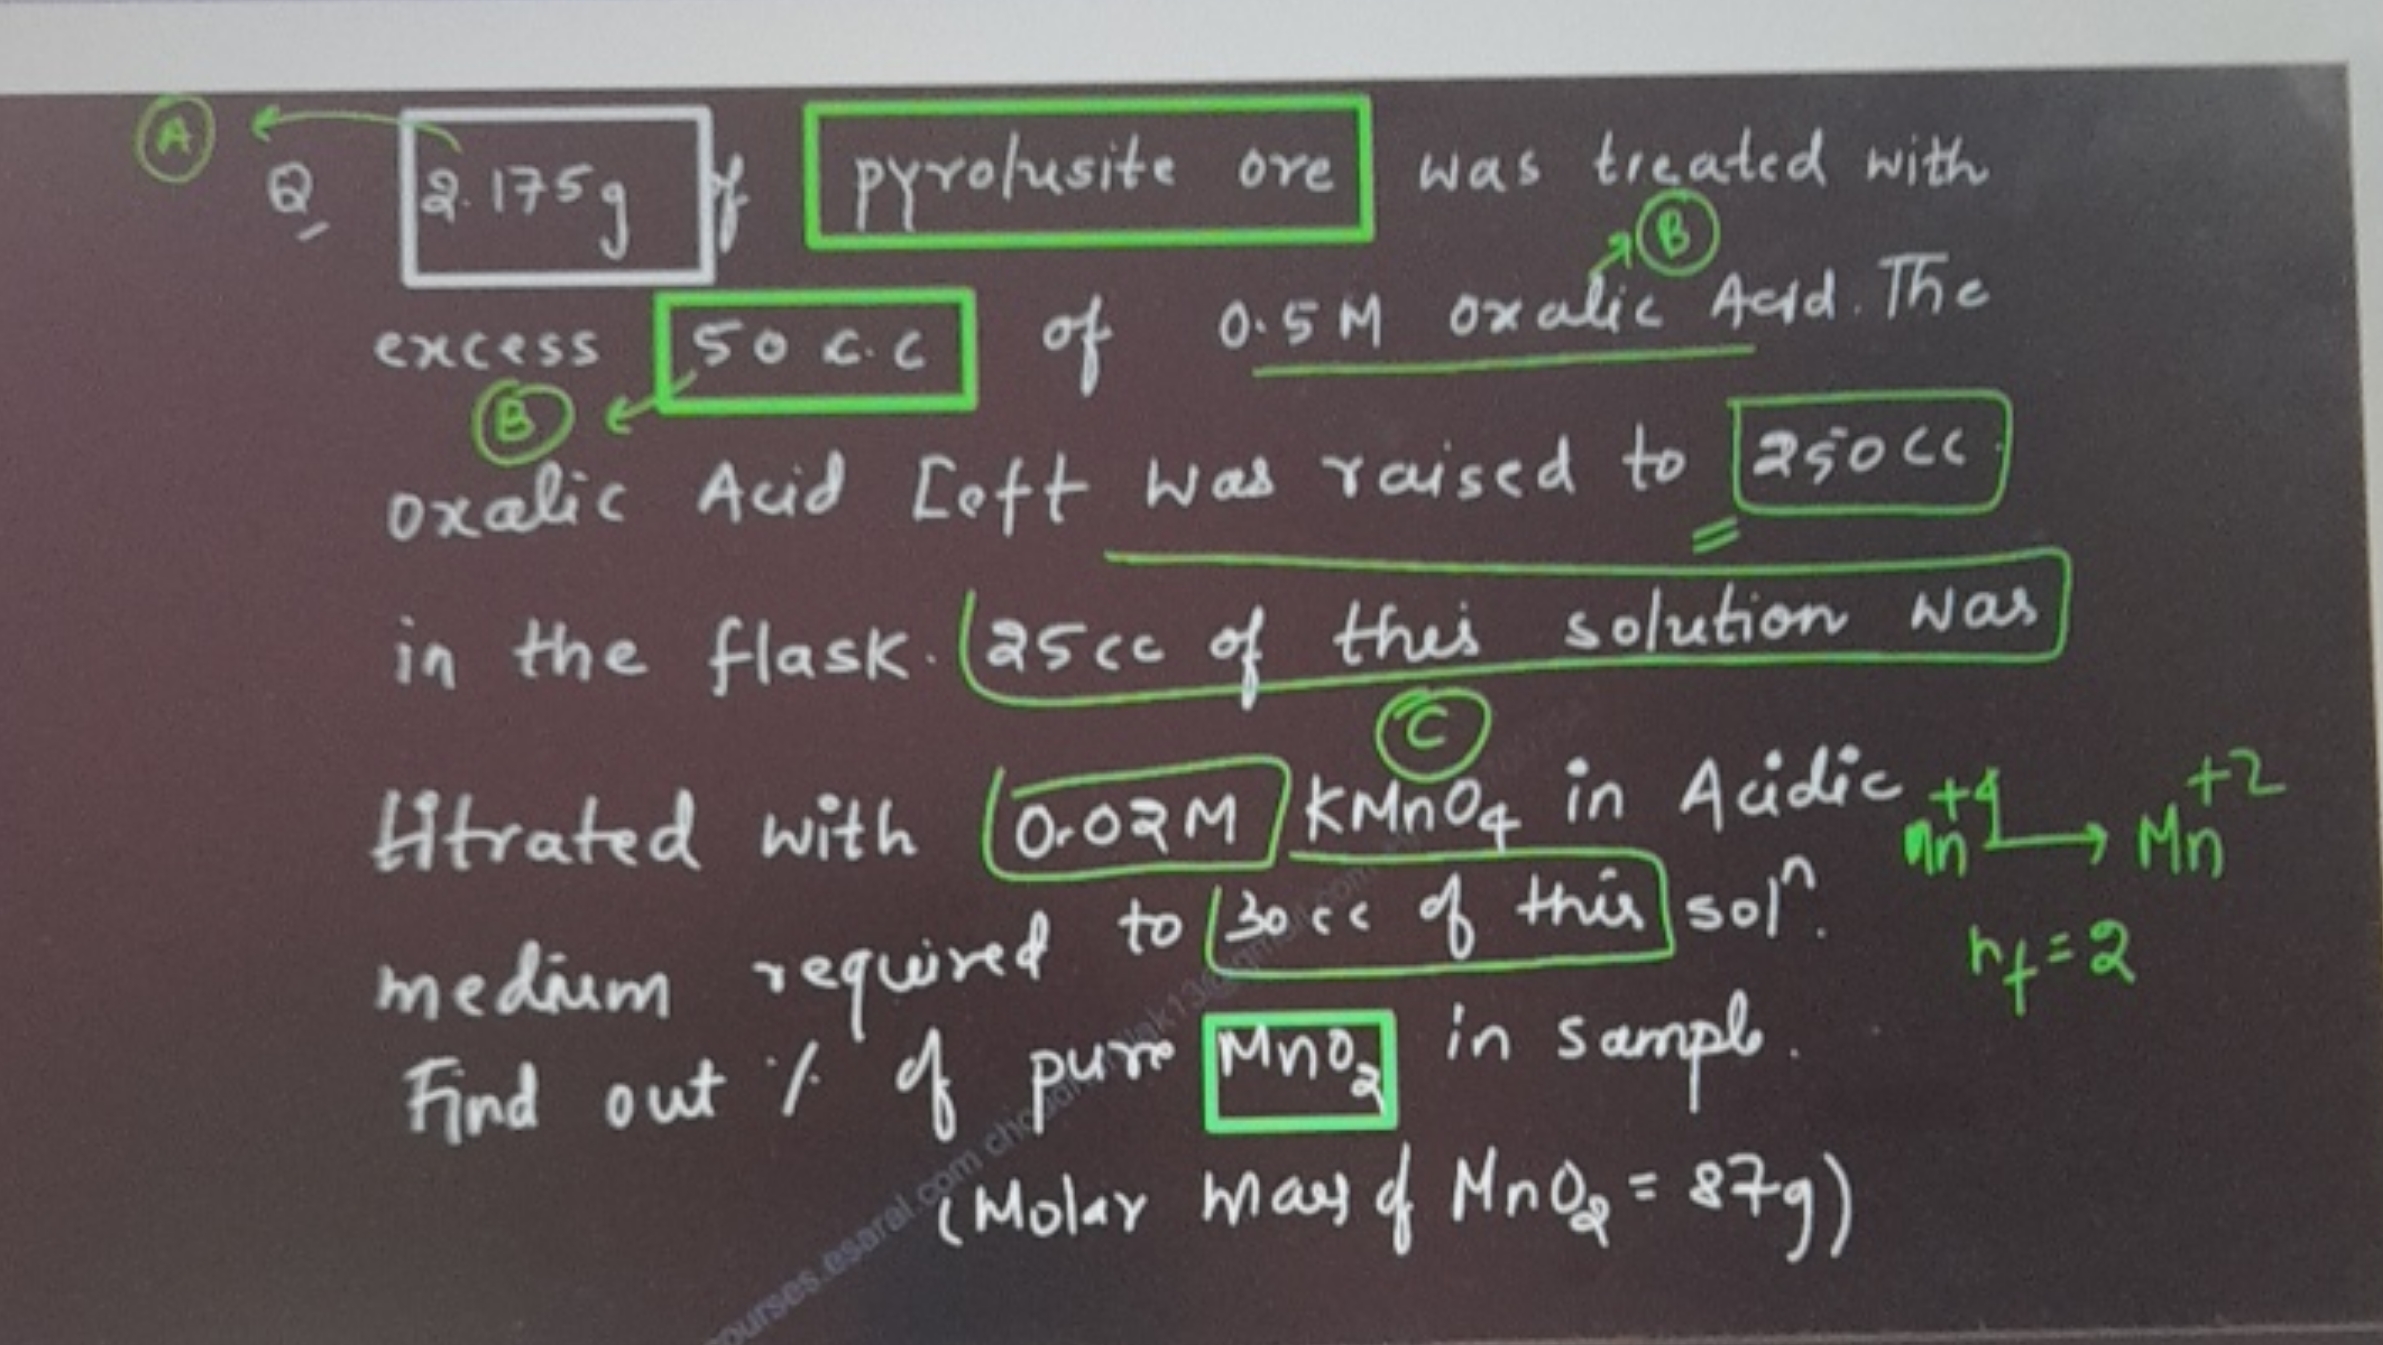 A
Q, 2.175g of pyrolusite ore was treated with
B
excess 50 c.c of 0.5M oxalic Acid. The
B
oxalic Acid Left was raised to 250cc
in the flask. 25cc of this solution was
C
titrated with 0.02M KMnO4 in Acidic
Mn+4 → Mn+2
medium required to 30cc of this solⁿ.
nf = 2
Find out % of pure MnO2 in sample.
(Molar mass of MnO2 = 87g)
courses.esaral.com